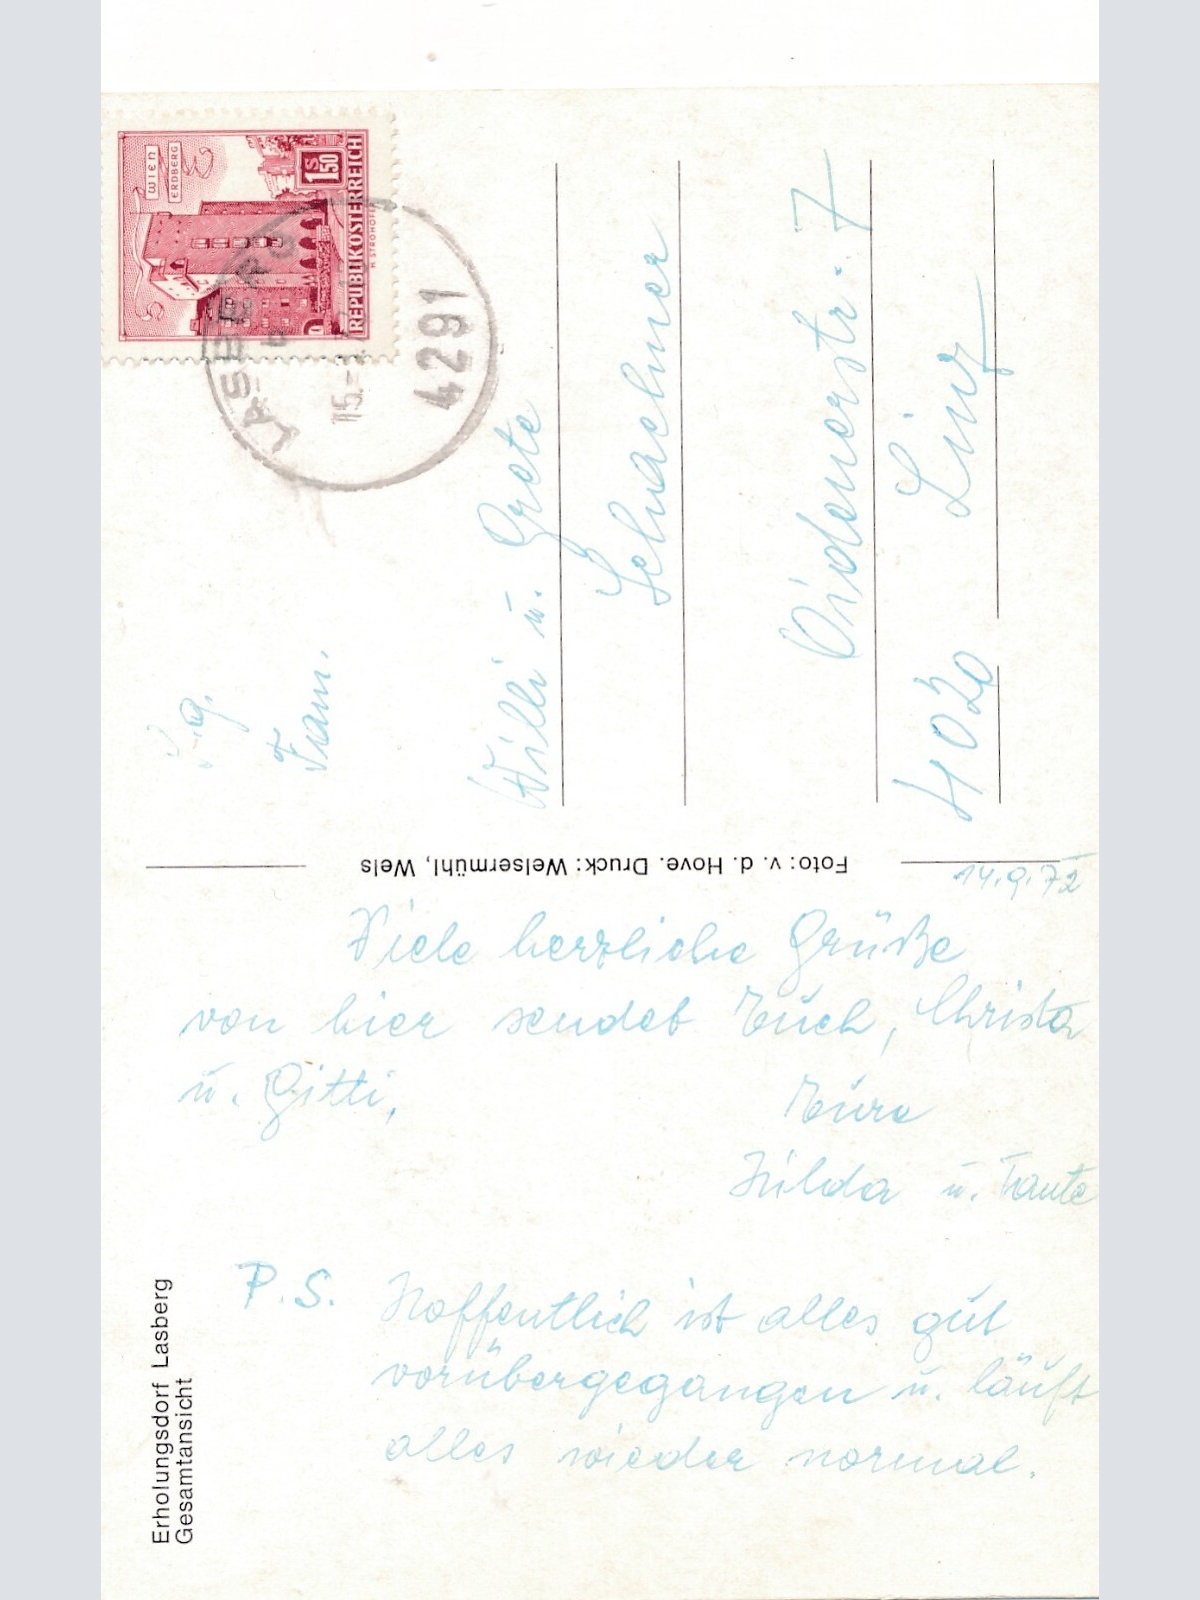 WIEN
ERDBERG
S 1.50
REPUBLIK ÖSTERREICH
H. STROHOFER
LASBERG
15.-
4291
Fam.
Willi u. Grete
Schachner
4020 Linz
Foto: v. d. Hove. Druck: Welsermühl, Wels
14.9.72
Viele herzliche Grüße
von hier sendet Euch, Christa
u. Gitti,
Eure
Hilda u. Tante
P.S. Hoffentlich ist alles gut
vorübergegangen u. läuft
alles wieder normal.
Erholungsdorf Lasberg
Gesamtansicht